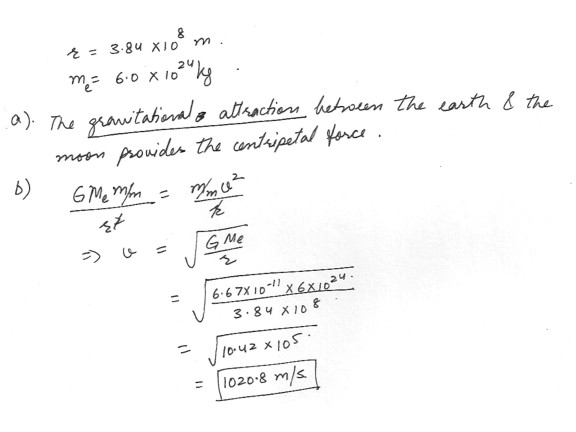 r = 3.84 ×10⁸ m.
mₑ = 6.0 × 10²⁴ kg.
a). The gravitational attraction between the earth & the
moon provides the centripetal force.
b) G Mₑ mₘ / r² = mₘ v² / r
⇒ v = √(G Mₑ / r)
= √(6.67×10⁻¹¹ × 6×10²⁴ / 3.84 × 10⁸)
= √(10.42 × 10⁵)
= 1020.8 m/s